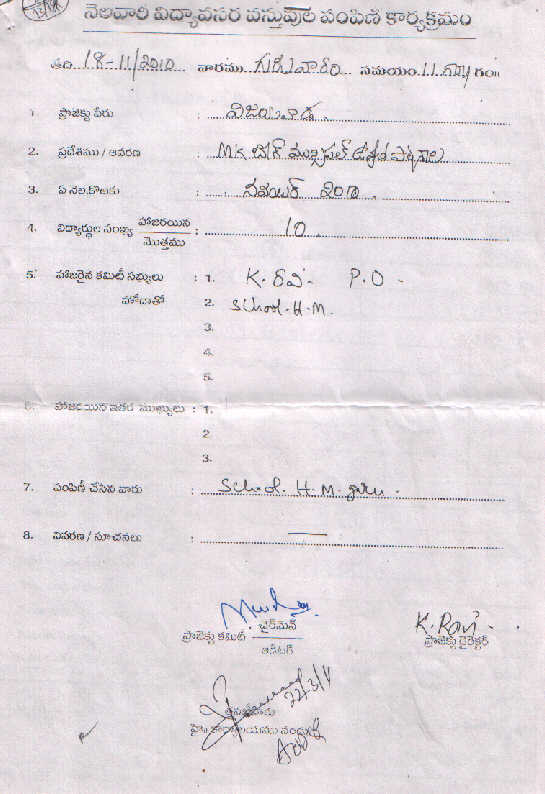 నెలవారి విద్యావసర వస్తువుల పంపిణి కార్యక్రమం
తేది 18-11/2010 వారము గురువారం సమయం 11 గం॥
1. ప్రాజెక్టు పేరు : విజయవాడ.
2. ప్రదేశము / ఆవరణ : ఉన్నత పాఠశాల
3. ఏ నెల కొఱకు : నవంబర్ 2010.
4. విద్యార్థుల సంఖ్య హాజరయిన : 10.
మొత్తము
5. హాజరైన కమిటీ సభ్యులు : 1. K. రవి. P.O -
హోదాతో 2. School. H.M.
3.
4.
5.
6. హాజరయిన ఇతర ముఖ్యులు : 1.
2.
3.
7. పంపిణీ చేసిన వారు : School. H.M. garu.
8. వివరణ / సూచనలు : —
ప్రాజెక్టు కమిటీ చైర్మెన్
ఆడిటర్
K. Ravi.
ప్రాజెక్టు డైరెక్టర్
22/3/11